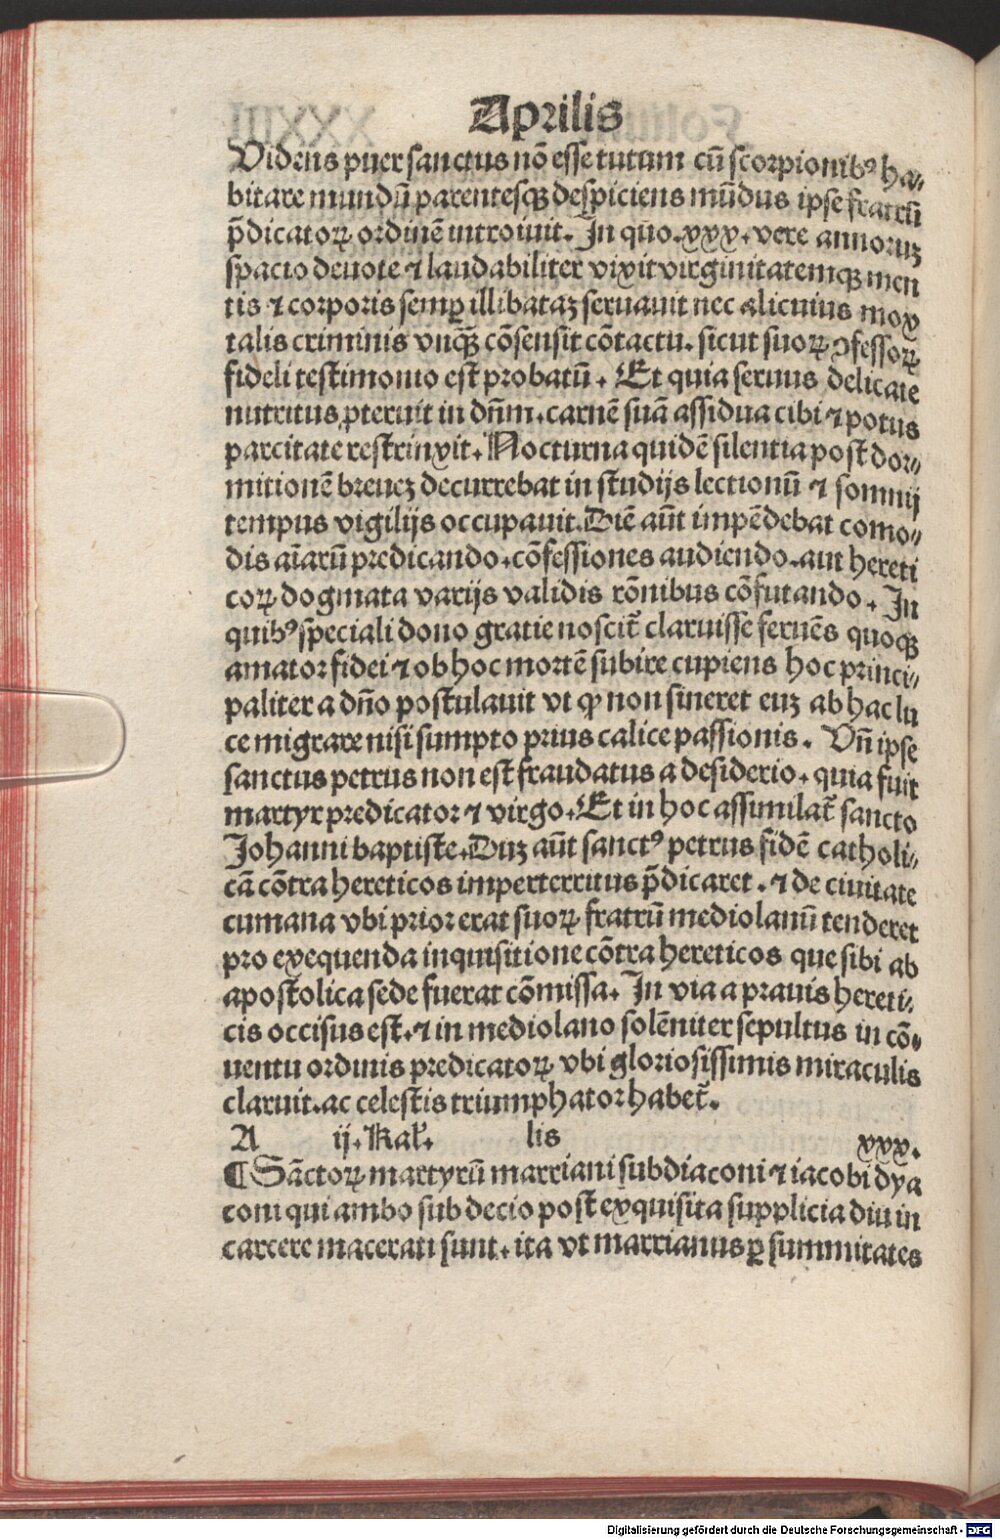 Aprilis
Videns puer sanctus nō esse tutum cū scorpionibꝰ ha⸗
bitare mundū parentesqꝫ despiciens mūdus ipse fratrū
p̄dicatoꝝ ordinē introiuit. In quo .xxx. vere annoruꝫ
spacio deuote ⁊ laudabiliter vixit virginitatemqꝫ men
tis ⁊ corporis semꝑ illibataꝫ seruauit nec alicuius mor
talis criminis vnqꝫ̄ cōsensit cōtactu. sicut suoꝝ ꝯfessoꝝ
fideli testimonio est probatū. Et quia seruus delicate
nutritus ꝓteruit in dn̄m. carnē suā assidua cibi ⁊ potus
parcitate restrinxit. Nocturna quidē silentia post dor⸗
mitionē breueꝫ decurrebat in studijs lectionū ⁊ somnij
tempus vigilijs occupauit. Diē aūt impēdebat como⸗
dis aīarū predicando. cōfessiones audiendo. aut hereti
coꝝ dogmata varijs validis rōnibus cōfutando. In
quibꝰ speciali dono gratie noscit̄ claruisse feruēs quoqꝫ
amator fidei ⁊ ob hoc mortē subire cupiens hoc princi⸗
paliter a dn̄o postulauit vt ꝙ non sineret euꝫ ab hac lu
ce migrare nisi sumpto prius calice passionis. Vn̄ ipse
sanctus petrus non est fraudatus a desiderio. quia fuit
martyr predicator ⁊ virgo. Et in hoc assimilat̄ sancto
Johanni baptiste. Duꝫ aūt sanctꝰ petrus fidē catholi⸗
cā cōtra hereticos imperterritus p̄dicaret. ⁊ de ciuitate
cumana vbi prior erat suoꝝ fratrū mediolanū tenderet
pro exequenda inquisitione cōtra hereticos que sibi ab
apostolica sede fuerat cōmissa. In via a prauis hereti⸗
cis occisus est. ⁊ in mediolano solēniter sepultus in cō⸗
uentu ordinis predicatoꝝ vbi gloriosissimis miraculis
claruit. ac celestis triumphator habet̄.
A ij. Kal̄. lis xxx.
¶ Sāctoꝝ martyrū marriani subdiaconi ⁊ iacobi dya
coni qui ambo sub decio post exquisita supplicia diu in
carcere macerati sunt. ita vt marrianus ꝑ summitates
Digitalisierung gefördert durch die Deutsche Forschungsgemeinschaft - DFG